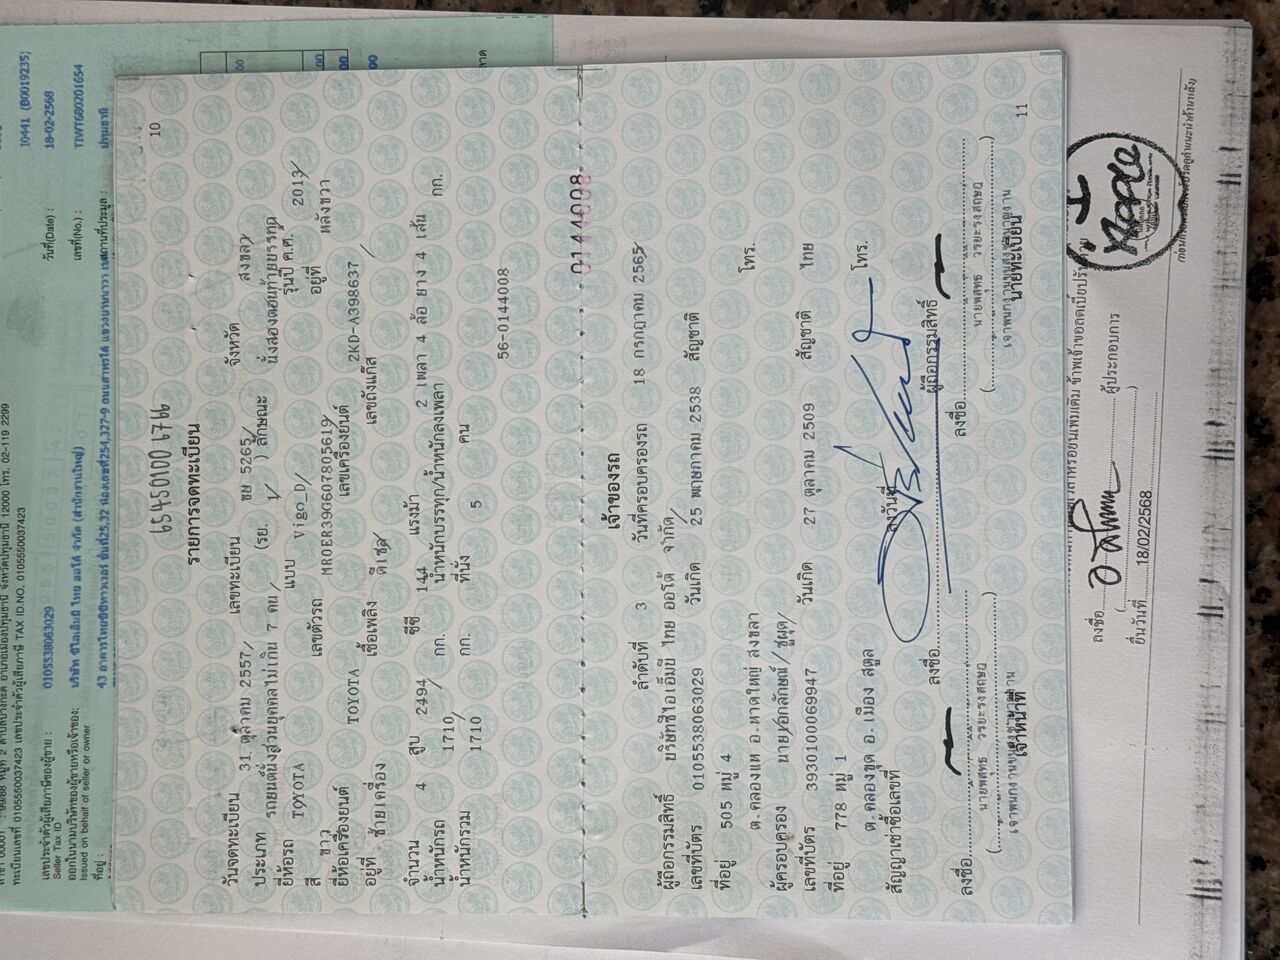 10441 (B0019235)
วันที่(Date) : 18-02-2568
เลขที่(No.) : TIWT680201654
ทะเบียนเลขที่ 0105550037423 เลขประจำตัวผู้เสียภาษี TAX ID.NO. 0105550037423
เลขประจำตัวผู้เสียภาษีของผู้ขาย : 0105538063029
Seller Tax ID
ออกในนามบริษัทของผู้ขายหรือเจ้าของ: บริษัท ซีไอเอ็มบี ไทย ออโต้ จำกัด (สำนักงานใหญ่)
Issued on behalf of seller or owner
ที่อยู่ :
10
654501006766
รายการจดทะเบียน
วันจดทะเบียน 31 ตุลาคม 2557 เลขทะเบียน ขษ 5265 จังหวัด สงขลา
ประเภท รถยนต์นั่งส่วนบุคคลไม่เกิน 7 คน (รย. 1 ) ลักษณะ นั่งสองตอนท้ายบรรทุก
ยี่ห้อรถ TOYOTA แบบ Vigo_D รุ่นปี ค.ศ. 2013
สี ขาว เลขตัวรถ MROER39G607805619 อยู่ที่ หลังขวา
ยี่ห้อเครื่องยนต์ TOYOTA เลขเครื่องยนต์ 2KD-A398637
อยู่ที่ ซ้ายเครื่อง เชื้อเพลิง ดีเซล เลขถังแก๊ส
จำนวน 4 สูบ 2494 ซีซี 144 แรงม้า 2 เพลา 4 ล้อ ยาง 4 เส้น
น้ำหนักรถ 1710 กก. น้ำหนักบรรทุก/น้ำหนักลงเพลา กก.
น้ำหนักรวม 1710 กก. ที่นั่ง 5 คน
56-0144008
0144008
เจ้าของรถ
ลำดับที่ 3 วันที่ครอบครองรถ 18 กรกฎาคม 2565
ผู้ถือกรรมสิทธิ์ บริษัทซีไอเอ็มบี ไทย ออโต้ จำกัด
เลขที่บัตร 0105538063029 วันเกิด 25 พฤษภาคม 2538 สัญชาติ
ที่อยู่ 505 หมู่ 4 โทร.
ต.คลองแห อ.หาดใหญ่ สงขลา
ผู้ครอบครอง นายเอกลักษณ์ ชูผุด
เลขที่บัตร 3930100069947 วันเกิด 27 ตุลาคม 2509 สัญชาติ ไทย
ที่อยู่ 778 หมู่ 1 โทร.
ต.คลองขุด อ.เมือง สตูล
สัญญาเช่าซื้อเลขที่ ลงวันที่
ลงชื่อ ผู้ถือกรรมสิทธิ์
ลงชื่อ ลงชื่อ
(นายพสุทธ วรยะรงสฤษฎ) (นายพสุทธ วรยะรงสฤษฎ)
เจ้าหน้าที่ นายทะเบียน
11
ลงชื่อ ผู้ประกอบการ
ยื่นวันที่ 18/02/2568